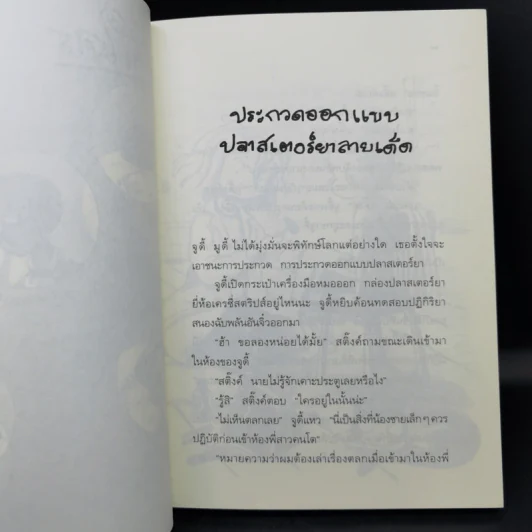 ประกวดออกแบบ
ปลาสเตอร์ยาลายเด็ด
จูดี้ มูดี้ ไม่ได้มุ่งมั่นจะพิทักษ์โลกแต่อย่างใด เธอตั้งใจจะ
เอาชนะการประกวด การประกวดออกแบบปลาสเตอร์ยา
จูดี้เปิดกระเป๋าเครื่องมือหมอออก กล่องปลาสเตอร์ยา
ยี่ห้อเครซี่สตริปส์อยู่ไหนนะ จูดี้หยิบค้อนทดสอบปฏิกิริยา
สนองฉับพลันอันจิ๋วออกมา
"ฮ้า ขอลองหน่อยได้มั้ย" สติ๊งค์ถามขณะเดินเข้ามา
ในห้องของจูดี้
"สติ๊งค์ นายไม่รู้จักเคาะประตูเลยหรือไง"
"รู้สิ" สติ๊งค์ตอบ "ใครอยู่ในนั้นน่ะ"
"ไม่เห็นตลกเลย" จูดี้แหว "นี่เป็นสิ่งที่น้องชายเล็กๆ ควร
ปฏิบัติก่อนเข้าห้องพี่สาวคนโต"
"หมายความว่าผมต้องเล่าเรื่องตลกเมื่อเข้ามาในห้องพี่